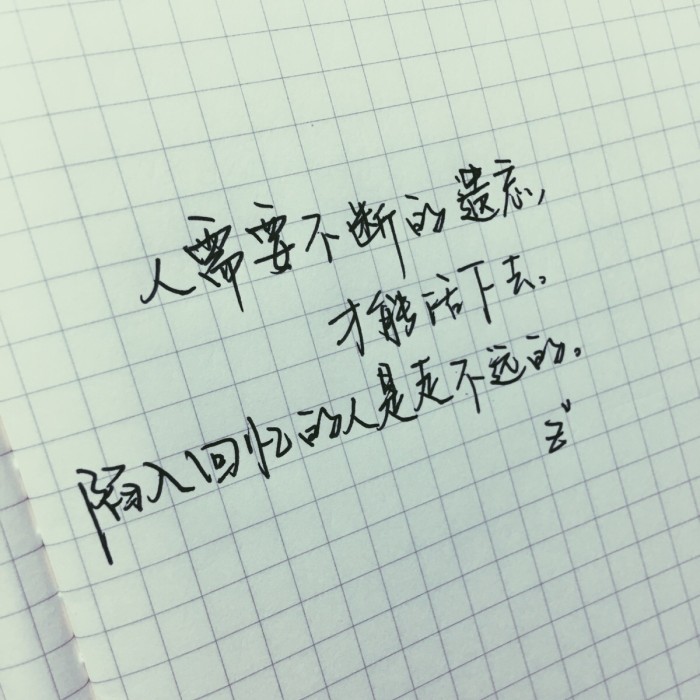 人需要不断的遗忘,
才能活下去。
陷入回忆的人是走不远的。
z"